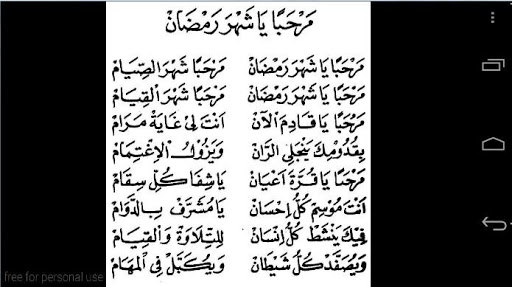 مَرْحَبًا يَا شَهْرَ رَمْضَانْ
مَرْحَبًا يَا شَهْرَ رَمْضَانْ مَرْحَبًا شَهْرَ الصِّيَامْ
مَرْحَبًا يَا شَهْرَ رَمْضَانْ مَرْحَبًا شَهْرَ الْقِيَامْ
مَرْحَبًا يَا قَادِمَ الْآنْ اَنْتَ لِيْ غَايَةْ مَرَامْ
بِقُدُوْمِكَ يَنْجَلِى الرَّانْ وَيَزُوْلُ الْاِغْتِمَامْ
مَرْحَبًا يَا قُرَّةَ اَعْيَانْ يَاشِفَا كُلِّ سِقَامْ
اَنْتَ مَوْسِمْ كُلُّ اِحْسَانْ يَا مُشَرَّفْ بِالدَّوَامْ
فِيْكَ يَنْشَطْ كُلُّ اِنْسَانْ لِلتِّلَاوَةْ وَالْقِيَامْ
وَيُصَفَّدْ كُلُّ شَيْطَانْ وَيُكَبَّلْ فِى الْمَهَامْ
free for personal use